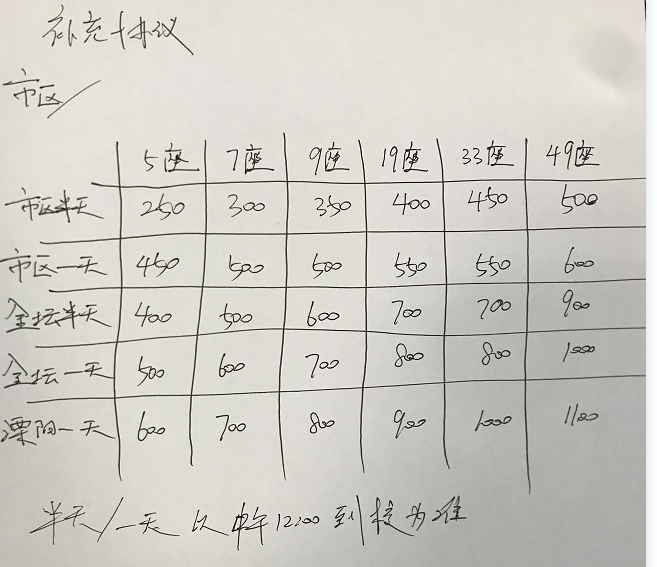 补充协议
市区/
5座 7座 9座 19座 33座 49座
市区半天 250 300 350 400 450 500
市区一天 450 500 500 550 550 600
金坛半天 400 500 600 700 700 900
金坛一天 500 600 700 800 800 1000
溧阳一天 600 700 800 900 1000 1100
半天/一天 以中午12:00到校为准